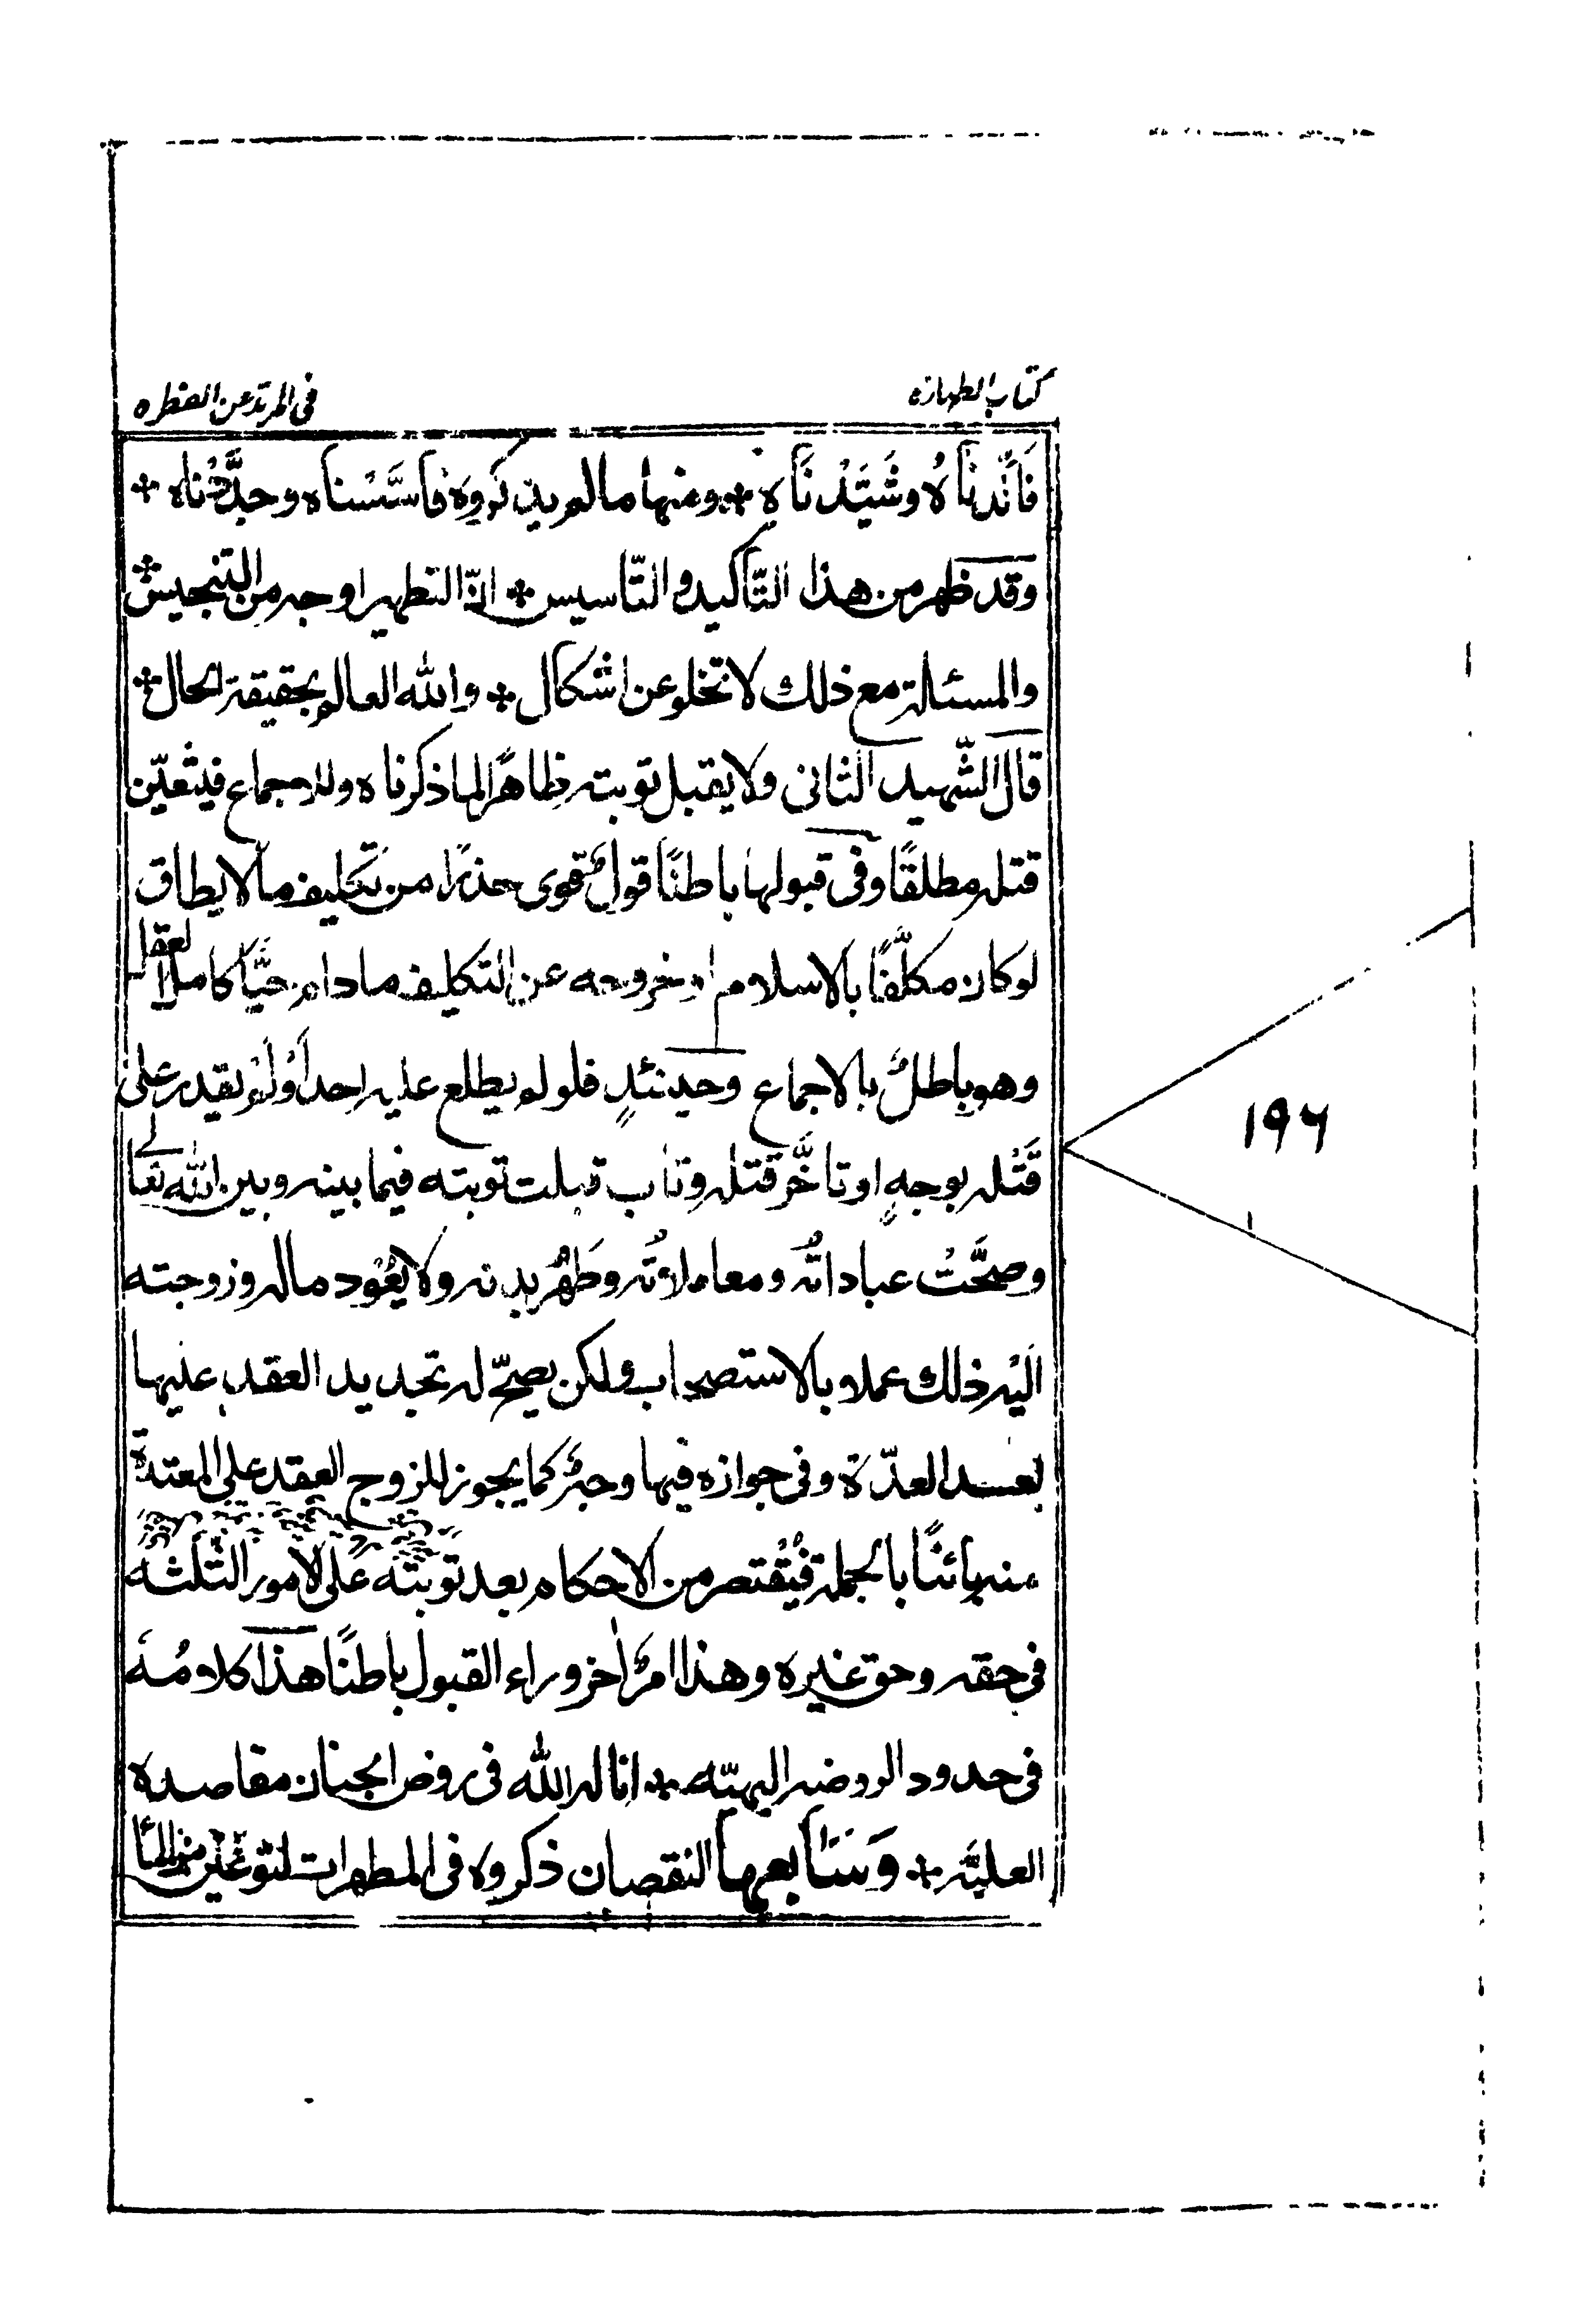 كتاب الطهارة
في المرتد عن الفطره
فَاَيَّدناهُ وشَيَّدْنَاه ومنها ما لم يذكروه فاسَّسْناه وحدَّدْناه
وقد ظهر من هذا التّاكيد والتّاسيس انّ التطهير اوجه من التنجيس
والمسئلة مع ذلك لا تخلو عن اشكال والله العالم بحقيقة الحال
قال الشّهيد الثانى ولا يقبل توبته ظاهرًا لما ذكرناه وللاجماع فيتعيّن
قتله مطلقًا وفى قبولها باطنًا قولٌ قوى حذرًا من تكليف ما لا يطاق
لو كان مكلّفًا بالاسلام او خروجه عن التكليف ما دام حيًّا كاملا لعقل
وهو باطلٌ بالاجماع وحينئذٍ فلو لم يطلع عليه احد اَوْ لَمْ يقدر على
قَتْله بوجهٍ او تاخَّر قتله وتاب قبلت توبته فيما بينه وبين الله تعالى
وصحَّتْ عباداتُه ومعاملاتُه وطَهُر بدنه ولا يَعُود ماله وزوجته
اليْه ذلك عملا بالاستصحاب ولكن يصحّ له تجديد العقد عليها
بعد العدّة وفى جوازه فيها وجهٌ كما يجوز للزوج العقد على المعتدة
منه بائنًا بالجملة فيُقْتصر من الاحكام بعد توبته على الامور الثّلثه
في حقه وحق غيره وهذا امرٌ اٰخر وراء القبول باطنًا هذا كلامُه
في حدود الروضه البهيّه اناله الله في روض الجنان مقاصده
العليّه وَسَابعها النقصان ذكروه في المطهرات
١٩٦